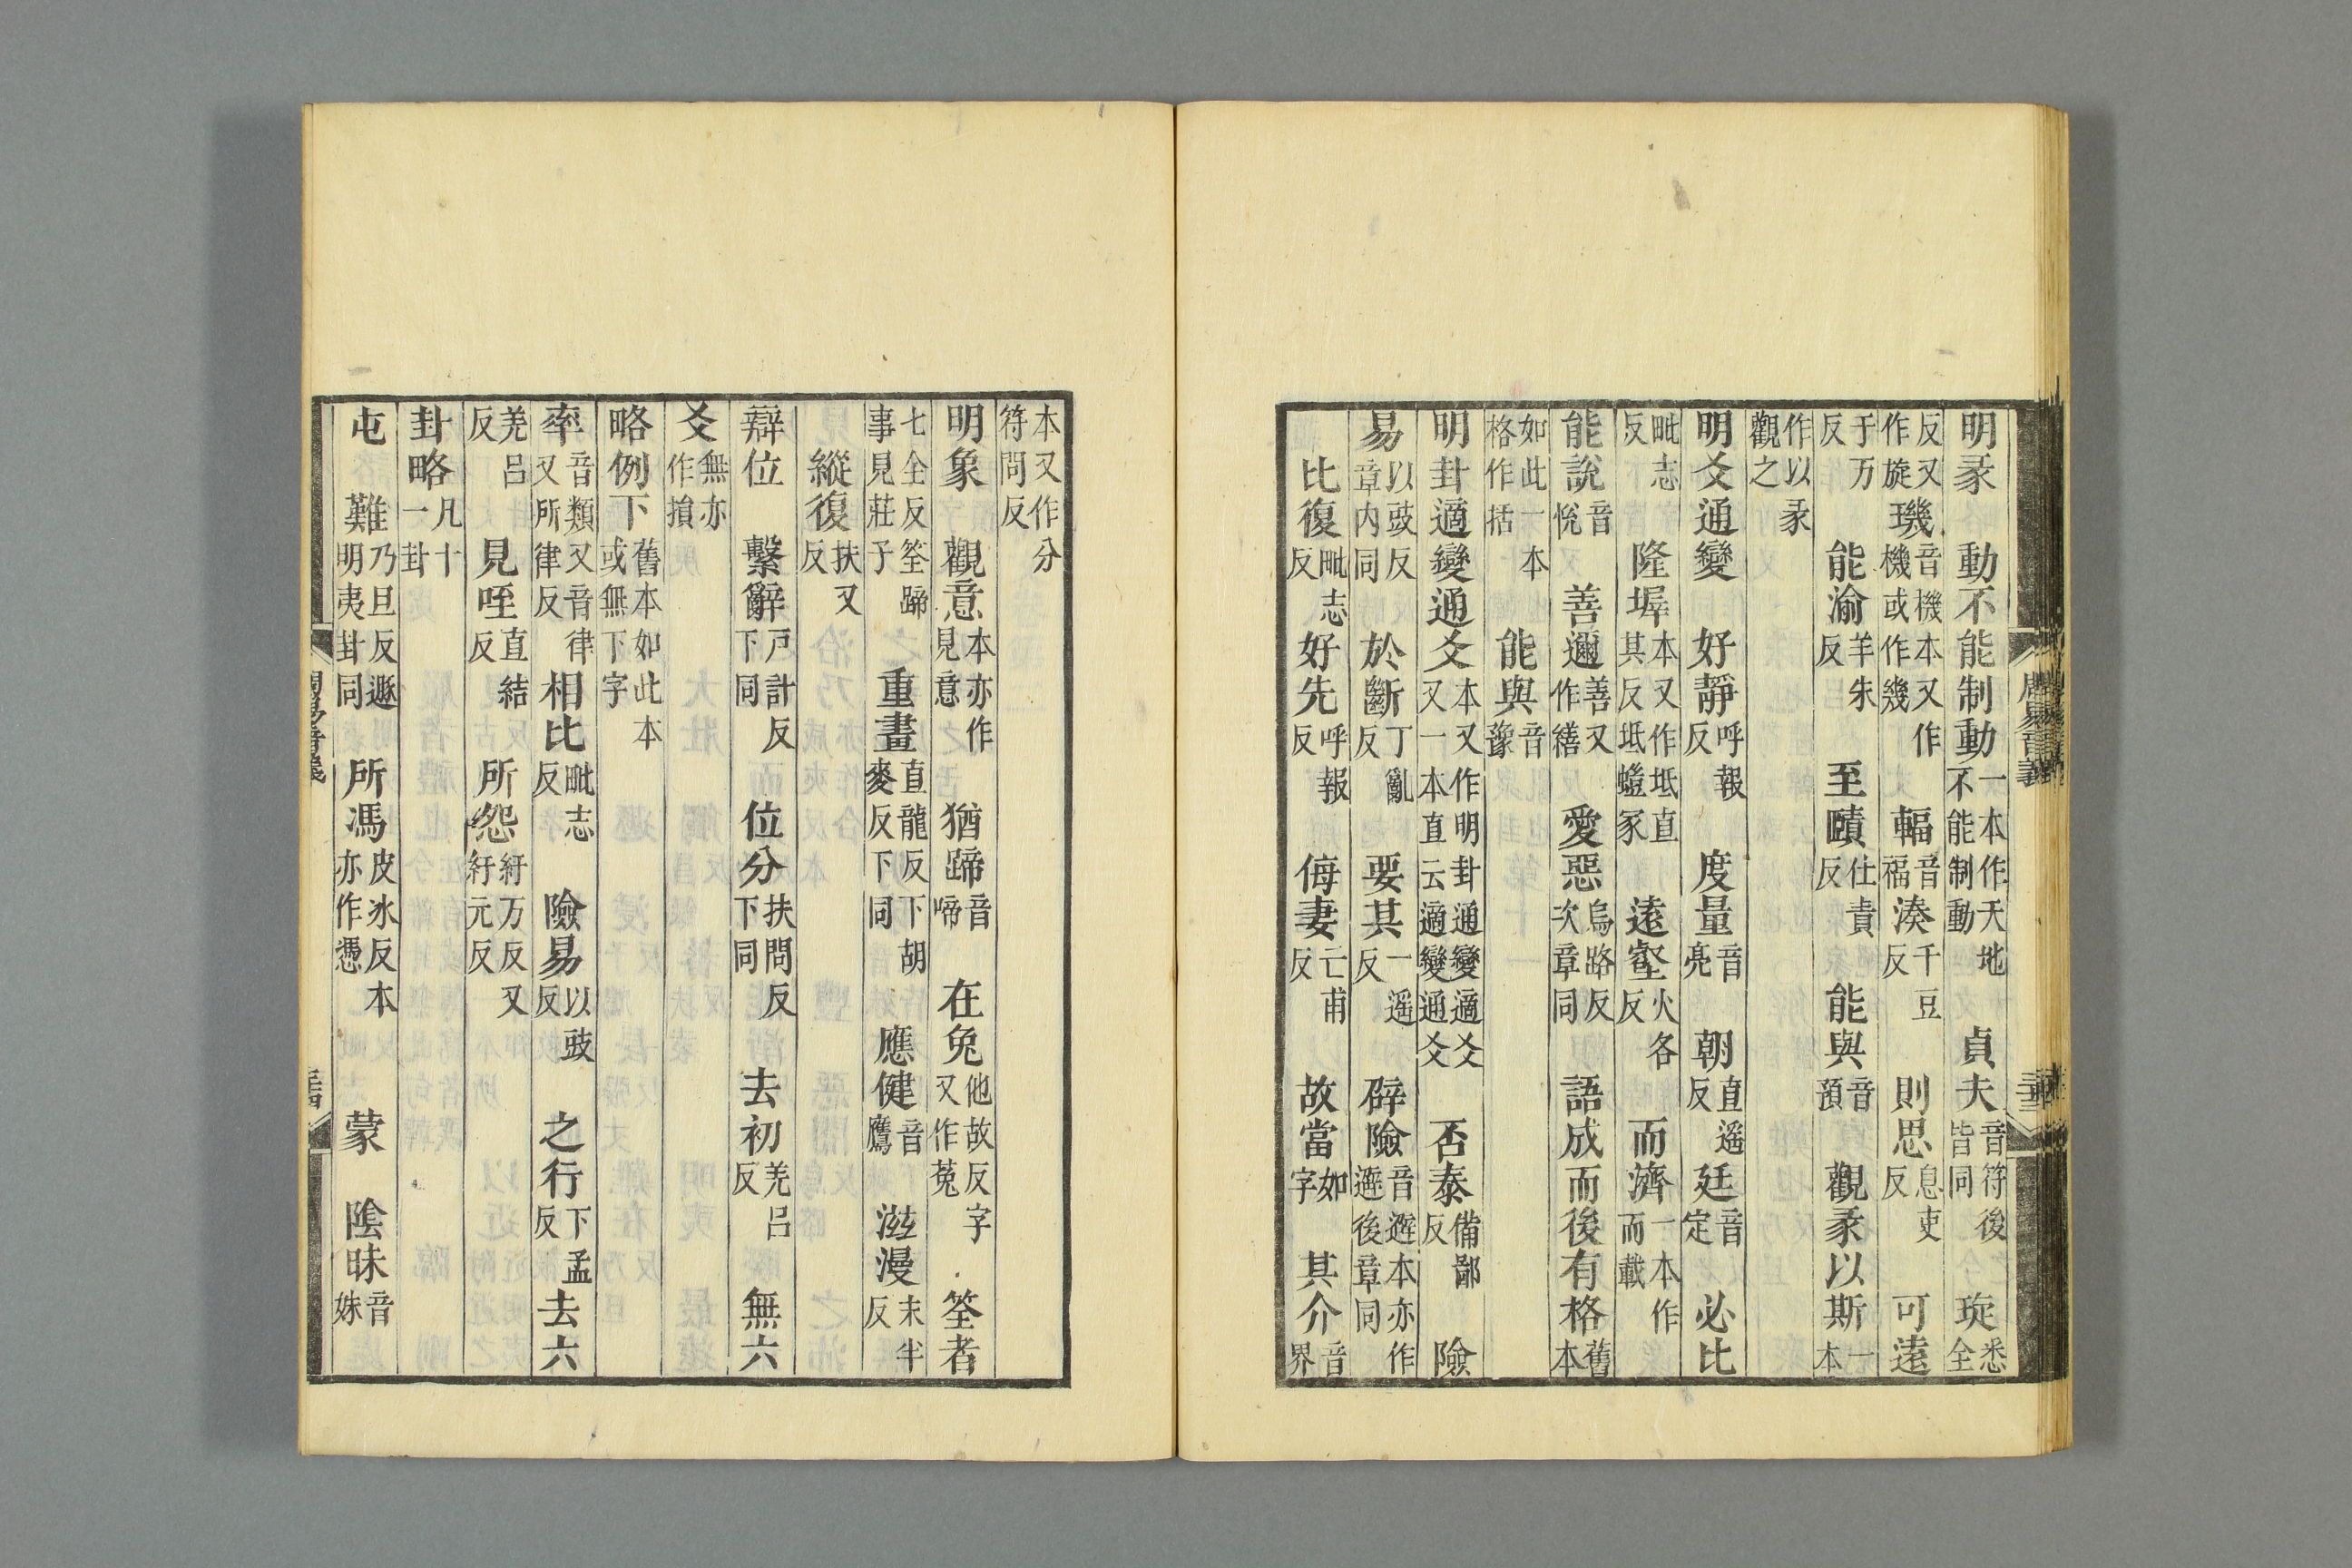 明彖　動不能制動一本作天地不能制動　貞夫音符後皆同　琁悉全
反又作旋璣音機本又作機或作幾　輻音福湊千豆反　則思息吏反　可遠
于万反　能渝羊朱反　至賾仕責反　能與音預　觀彖以斯一本
作以彖觀之
明爻通變　好靜呼報反　度量音亮　朝直遥反廷音定　必比
毗志反　隆墀本又作坻直其反坻螘冢　遠壑火各反　而濟一本作而載
能說音悅　善邇善又作繕　愛惡烏路反次章同　語成而後有格舊本
如此一本格作括　能與音豫
明卦適變通爻本又作明卦通變適爻又一本直云適變通爻　否泰備鄙反　險
易以豉反章内同　於斷丁亂反　要其一遥反　辟險音避本亦作遯後章同
比復毗志反　好先呼報反　侮妻亡甫反　故當如字　其介音界
周易音義
三十三
本又作分符問反
明象　觀意本亦作見意　猶蹄音啼　在兔他故反字又作菟　筌者
七全反筌蹄事見莊子　重畫直龍反下胡麥反下同　應健音鷹　滋漫末半反
縱復扶又反
辯位　繫辭戸計反下同　位分扶問反下同　去初羌呂反　無六
爻無亦作損
略例下舊本如此本或無下字
率音類又音律又所律反　相比毗志反　險易以豉反　之行下孟反去六
羌呂反　見咥直結反　所怨紆万反又紆元反
卦略凡十一卦
屯　難乃旦反遯明夷卦同　所馮皮冰反本亦作憑　蒙　陰昧音妹
周易音義